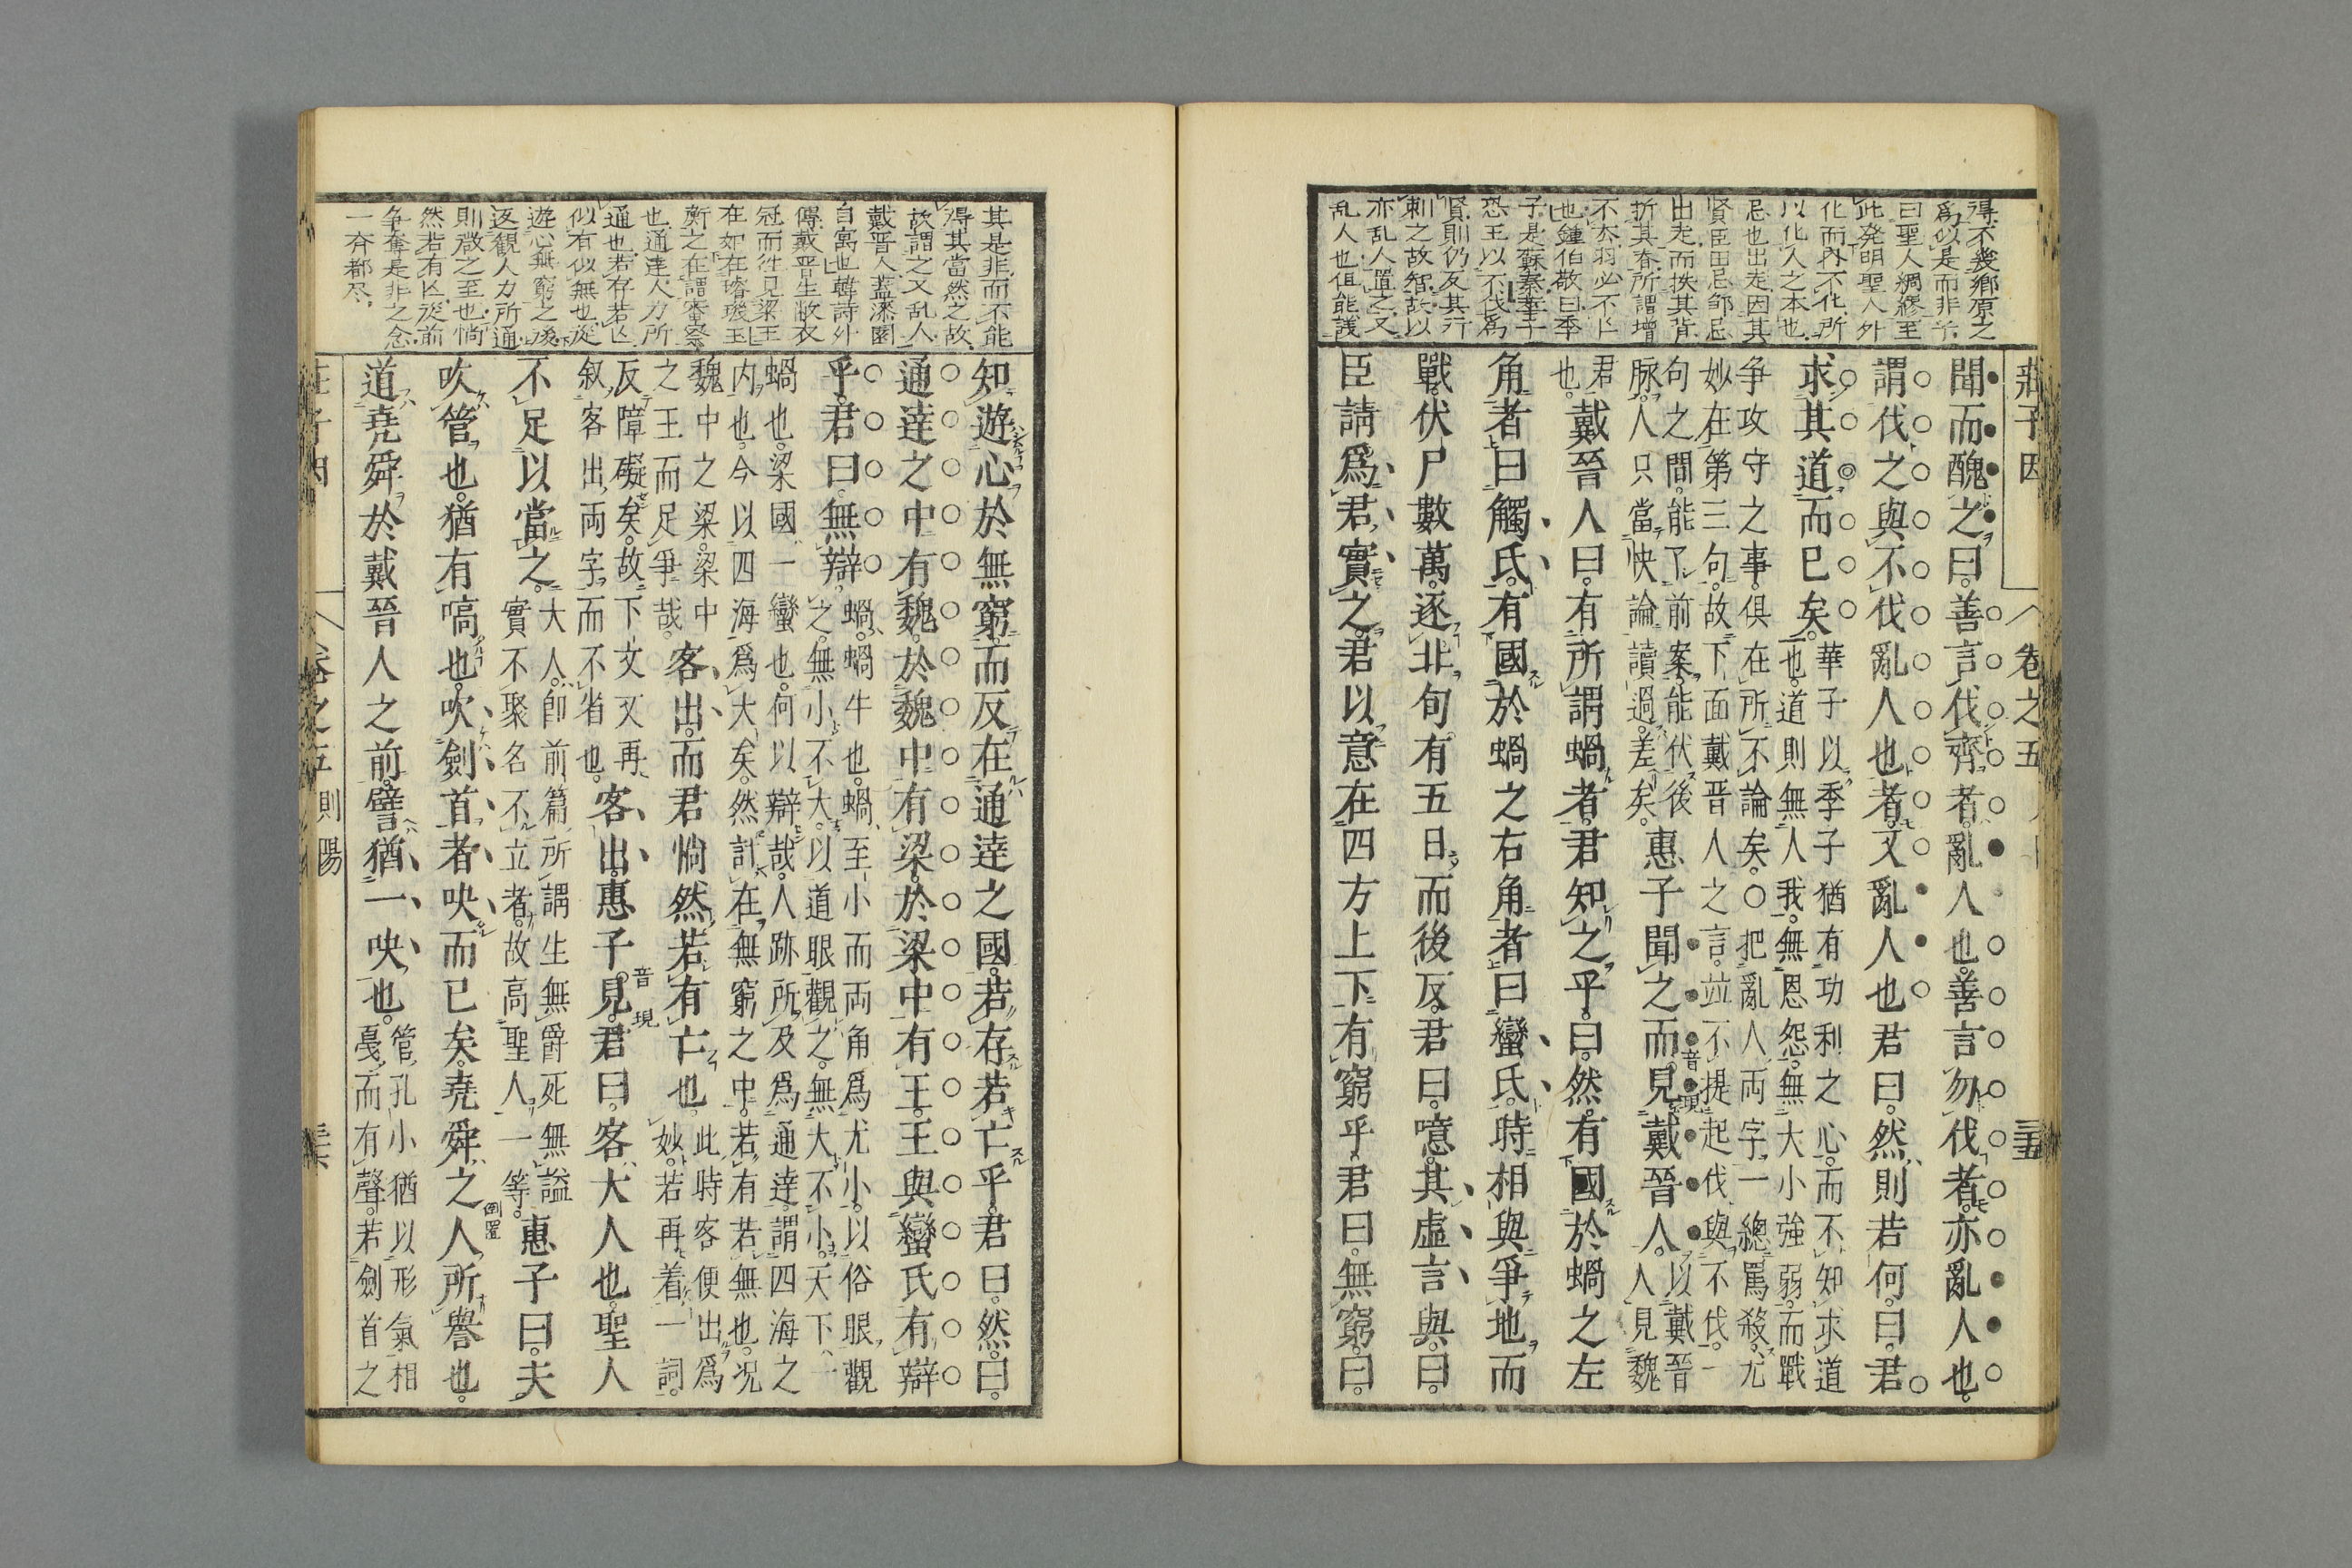 莊子因
卷之五
三十五
得不幾鄉原之
爲似是而非乎
曰聖人綢繆至
此発明聖人外
化而内不化所
以化人之本也
忌也出走因其
賢臣田忌卽忌
出走而抶其背
折其脊所謂増
也鍾伯敬曰季
子是蘇秦華子
恐王以不伐爲
賢則仍反其行
刺之故智故以
亦乱人置之又
乱人也伹能談
聞而醜之曰善言伐齊者亂人也善言勿伐者亦亂人也
謂伐之與不伐亂人也者又亂人也君曰然則若何曰君
求其道而已矣
華子以季子猶有功利之心而不知求道
也道則無人我無恩怨無大小強弱而戰
争攻守之事俱在所不論矣○把亂人両字一總罵殺尤
妙在第三句故下面戴晉人之言竝不提起伐與不伐一
句之間能了前案能伏後
脉人只當快論讀過差矣
惠子聞之而見戴晉人
音現
以戴晉
人見魏
君
也
戴晉人曰有所謂蝸者君知之乎曰然有國於蝸之左
角者曰觸氏有國於蝸之右角者曰蠻氏時相與爭地而
戰伏尸數萬逐北旬有五日而後反君曰噫其虛言與曰
臣請爲君實之君以意在四方上下有窮乎君曰無窮曰
其是非而不能
得其當然之故
故謂之又乱人
戴晋人蓋漆園
自寓也韓詩外
傳戴晋生敝衣
冠而徃見梁王
也通達人力所
通也若存若亾
似有似無也従
遊心無窮之後
返観人力所通
則微之至也惝
然若有亾従前
争奪是非之念
一斉都尽
知遊心於無窮而反在通達之國若存若亡乎君曰然曰
通達之中有魏於魏中有梁於梁中有王王與蠻氏有辯
乎君曰無辯
蝸蝸牛也蝸至小而両角爲尤小以俗眼觀
之無小不大以道眼觀之無大不小天下一
蝸也梁國一蠻也何以辯哉人跡所及爲通達謂四海之
内也今以四海爲大矣然計在無窮之中若有若無也况
魏中之梁梁中
之王而足爭哉
客出而君惝然若有亡也
此時客便出爲
妙若再着一詞
反障礙矣故下文又再
叙客出両字而不省也
客出惠子見君曰客大人也聖人
音現
不足以當之
大人卽前篇所謂生無爵死無謚
實不聚名不立者故高聖人一等
惠子曰夫
吹管也猶有嗃也吹劍首者吷而已矣堯舜之人所譽也
倒置
道堯舜於戴晉人之前譬猶一吷也
管孔小猶以形氣相
戞而有聲若劍首之
卷之五
則陽